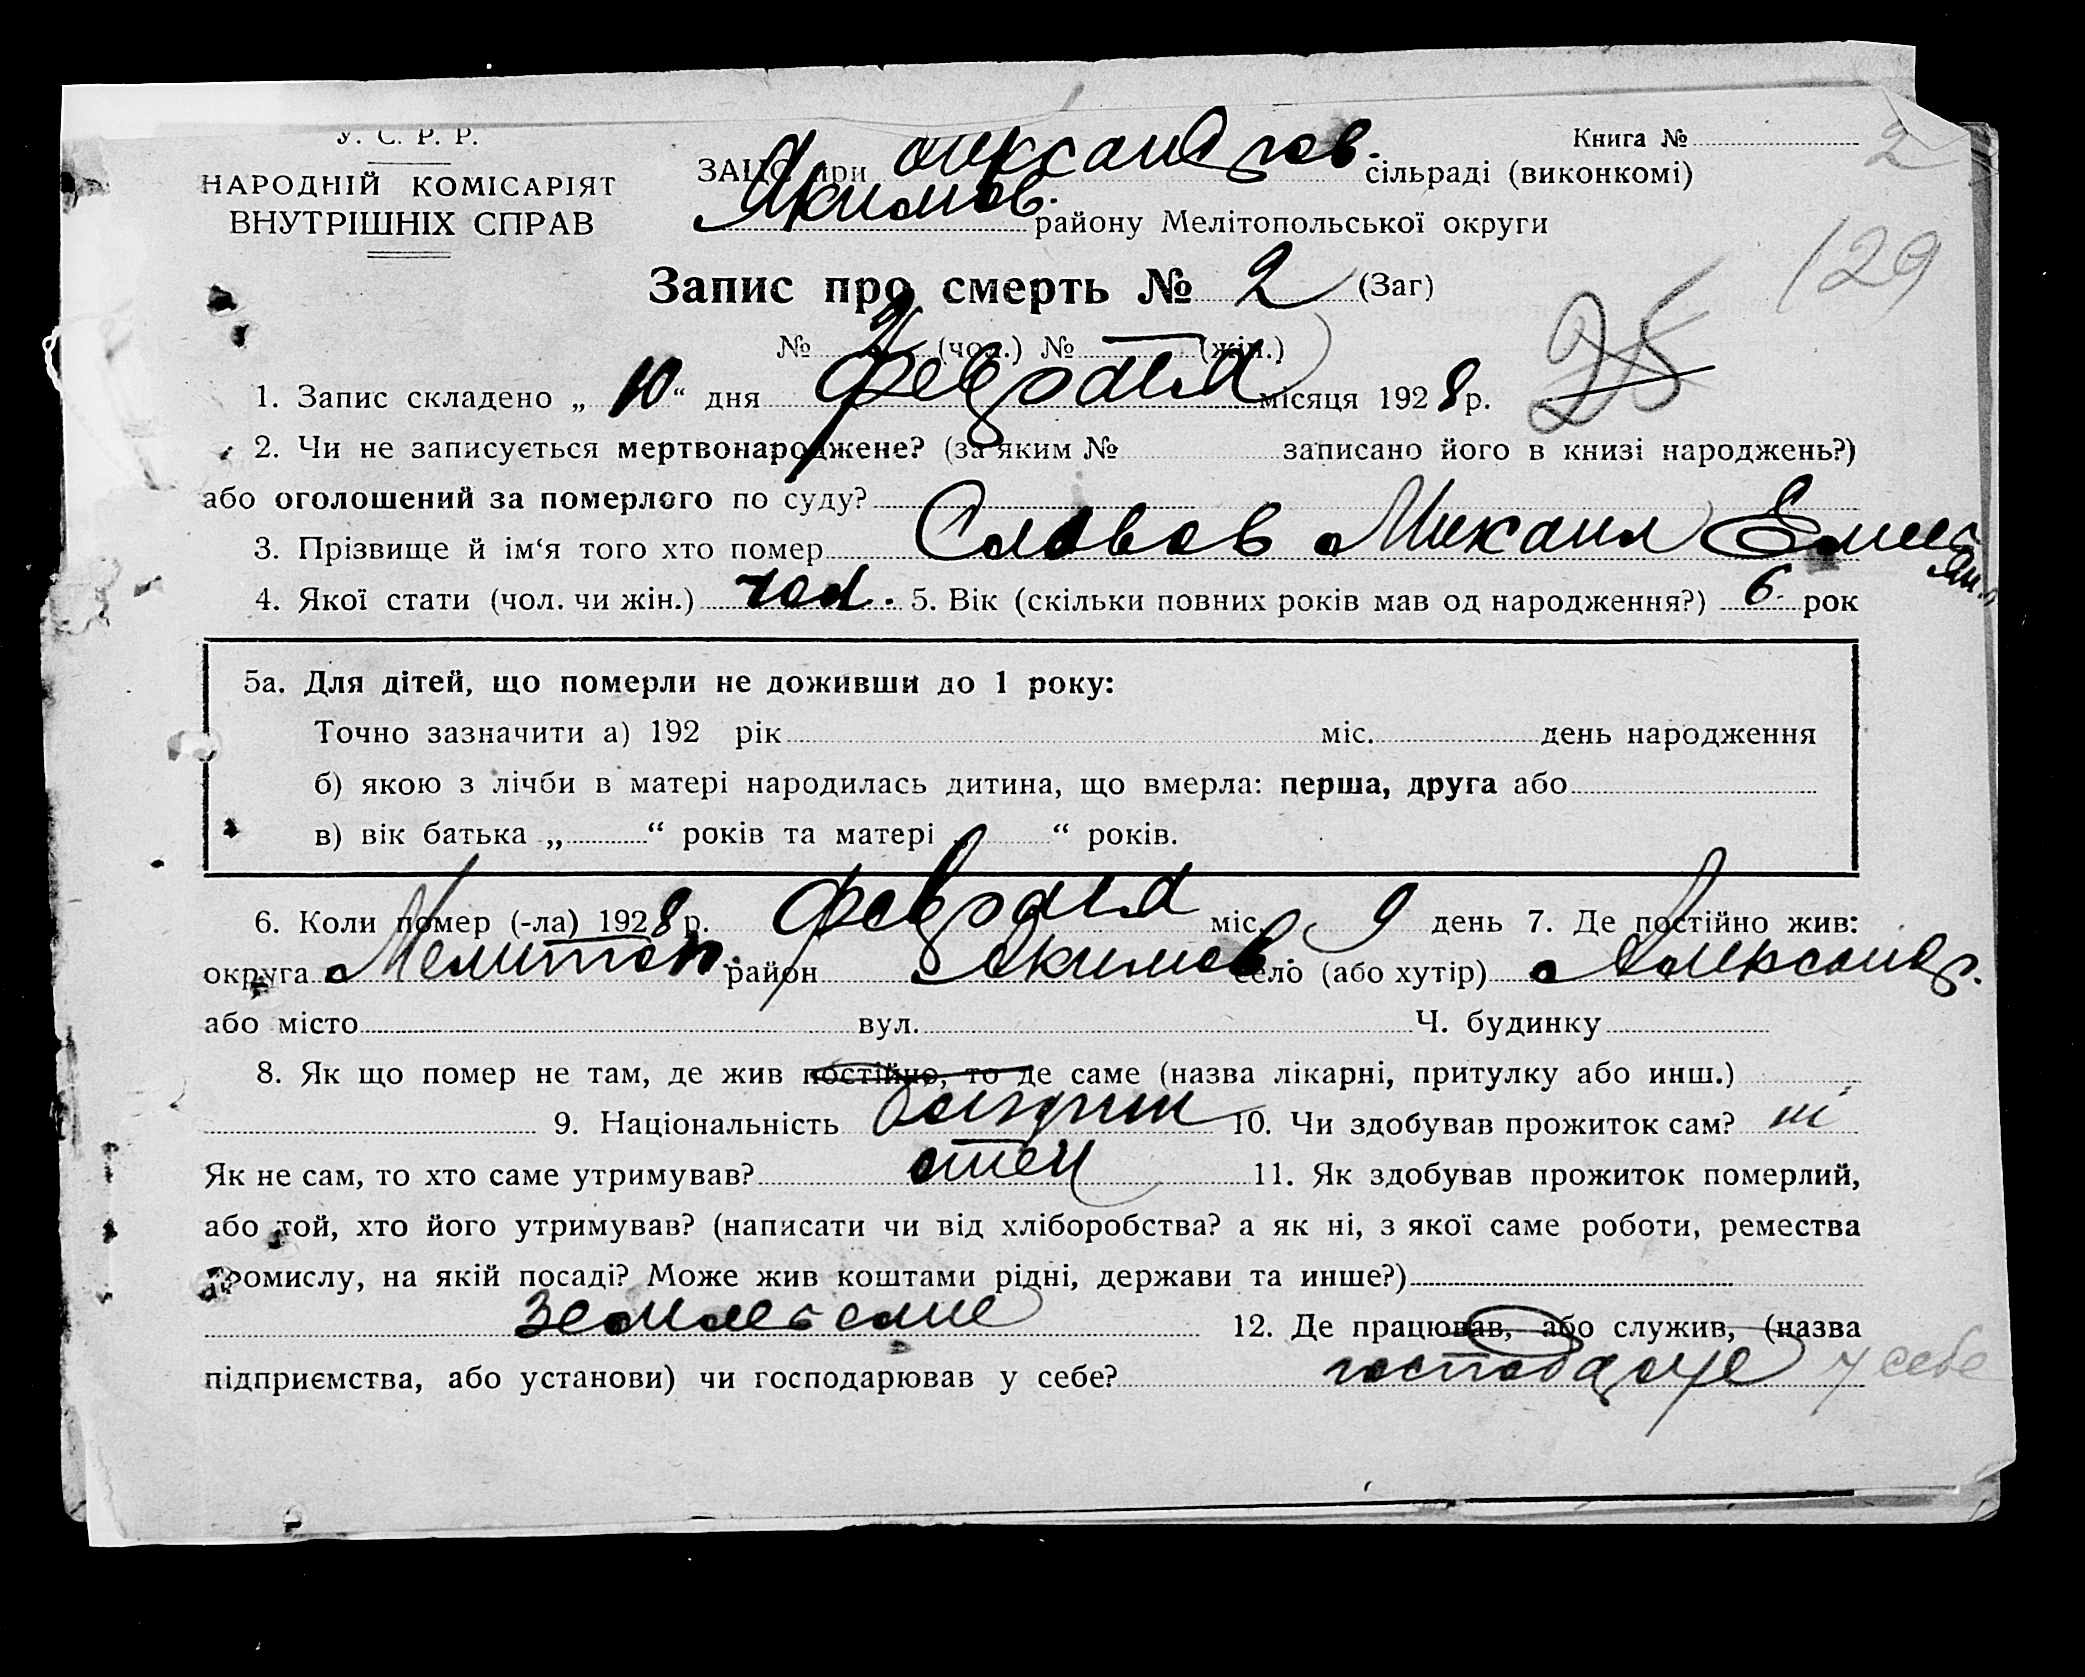 У. С. Р. Р.
НАРОДНІЙ КОМІСАРІЯТ
ВНУТРІШНІХ СПРАВ
Книга № 2
ЗАГС при Александров. сільраді (виконкомі)
Якимов. району Мелітопольської округи
129
Запис про смерть № 2 (Заг)
№ 2 (чол.) № — (жін.)
25
1. Запис складено „10“ дня февраля місяця 1928 р.
2. Чи не записується мертвонароджене? (за яким № записано його в книзі народжень?)
або оголошений за померлого по суду?
3. Прізвище й ім‘я того хто помер Словов Михаил Емельян.
4. Якої стати (чол. чи жін.) чол. 5. Вік (скільки повних років мав од народження?) 6 рок
5а. Для дітей, що померли не доживши до 1 року:
Точно зазначити а) 192 рік міс. день народження
б) якою з лічби в матері народилась дитина, що вмерла: перша, друга або
в) вік батька „ “ років та матері „ “ років.
6. Коли помер (-ла) 1928 р. февраля міс. 9 день 7. Де постійно жив:
округа Мелитоп. район Якимов. село (або хутір) Александр.
або місто вул. Ч. будинку
8. Як що помер не там, де жив постійно, то де саме (назва лікарні, притулку або инш.)
9. Національність болгрин 10. Чи здобував прожиток сам? ні
Як не сам, то хто саме утримував? отец 11. Як здобував прожиток померлий,
або той, хто його утримував? (написати чи від хліборобства? а як ні, з якої саме роботи, ремества
промислу, на якій посаді? Може жив коштами рідні, держави та инше?)
земледелие 12. Де працював, або служив, (назва
підприємства, або установи) чи господарював у себе? господарує у себе